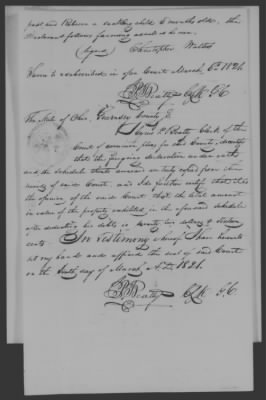 past and Rebecca a suckling child 6 months old, the
Declarant follows farming as
(Signed) Christopher Walters
Sworn to & subscribed in open Court March 6th 1821.
C P Beatty Clk G. C.
The State of Ohio, Guernsey County SS
I Cyrus P Beatty Clerk of the
Court of common pleas for said County do certify
that the foregoing declaration under oath
and the schedule thereto annexed are truly copied from the
records of said Court, and I do further certify that it is
the opinion of the said Court that the total amount
in value of the property exhibited in the aforesaid schedule
after deducting his debts is twenty six dollars & sixteen
cents. In testimony whereof I have hereunto
set my hand and affixed the seal of said Court
on the Sixth day of March A. D. 1821.
C P Beatty Clk G. C.